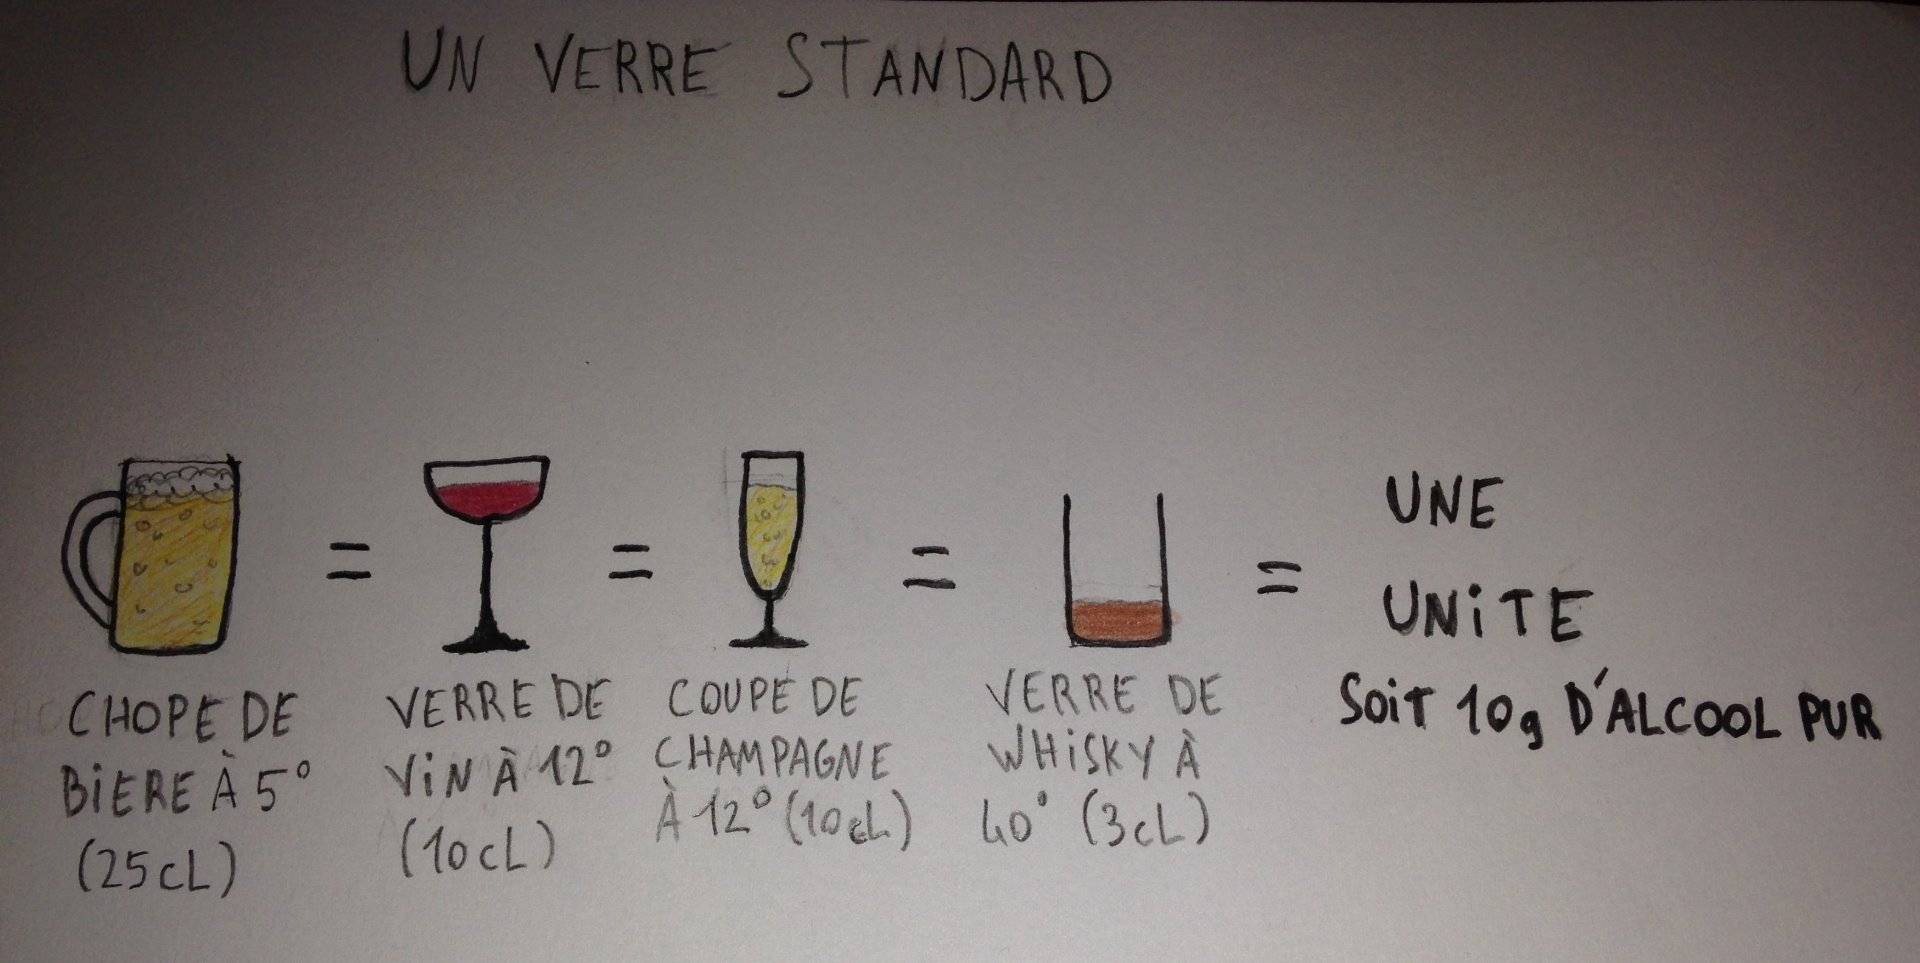 UN VERRE STANDARD
= = = =
UNE
UNiTE
SOiT 10g D'ALCOOL PUR
CHOPE DE
BiERE À 5°
(25cL)
VERRE DE
ViN À 12°
(10cL)
COUPE DE
CHAMPAGNE
À 12° (10cL)
VERRE DE
WHiSKY À
40° (3cL)